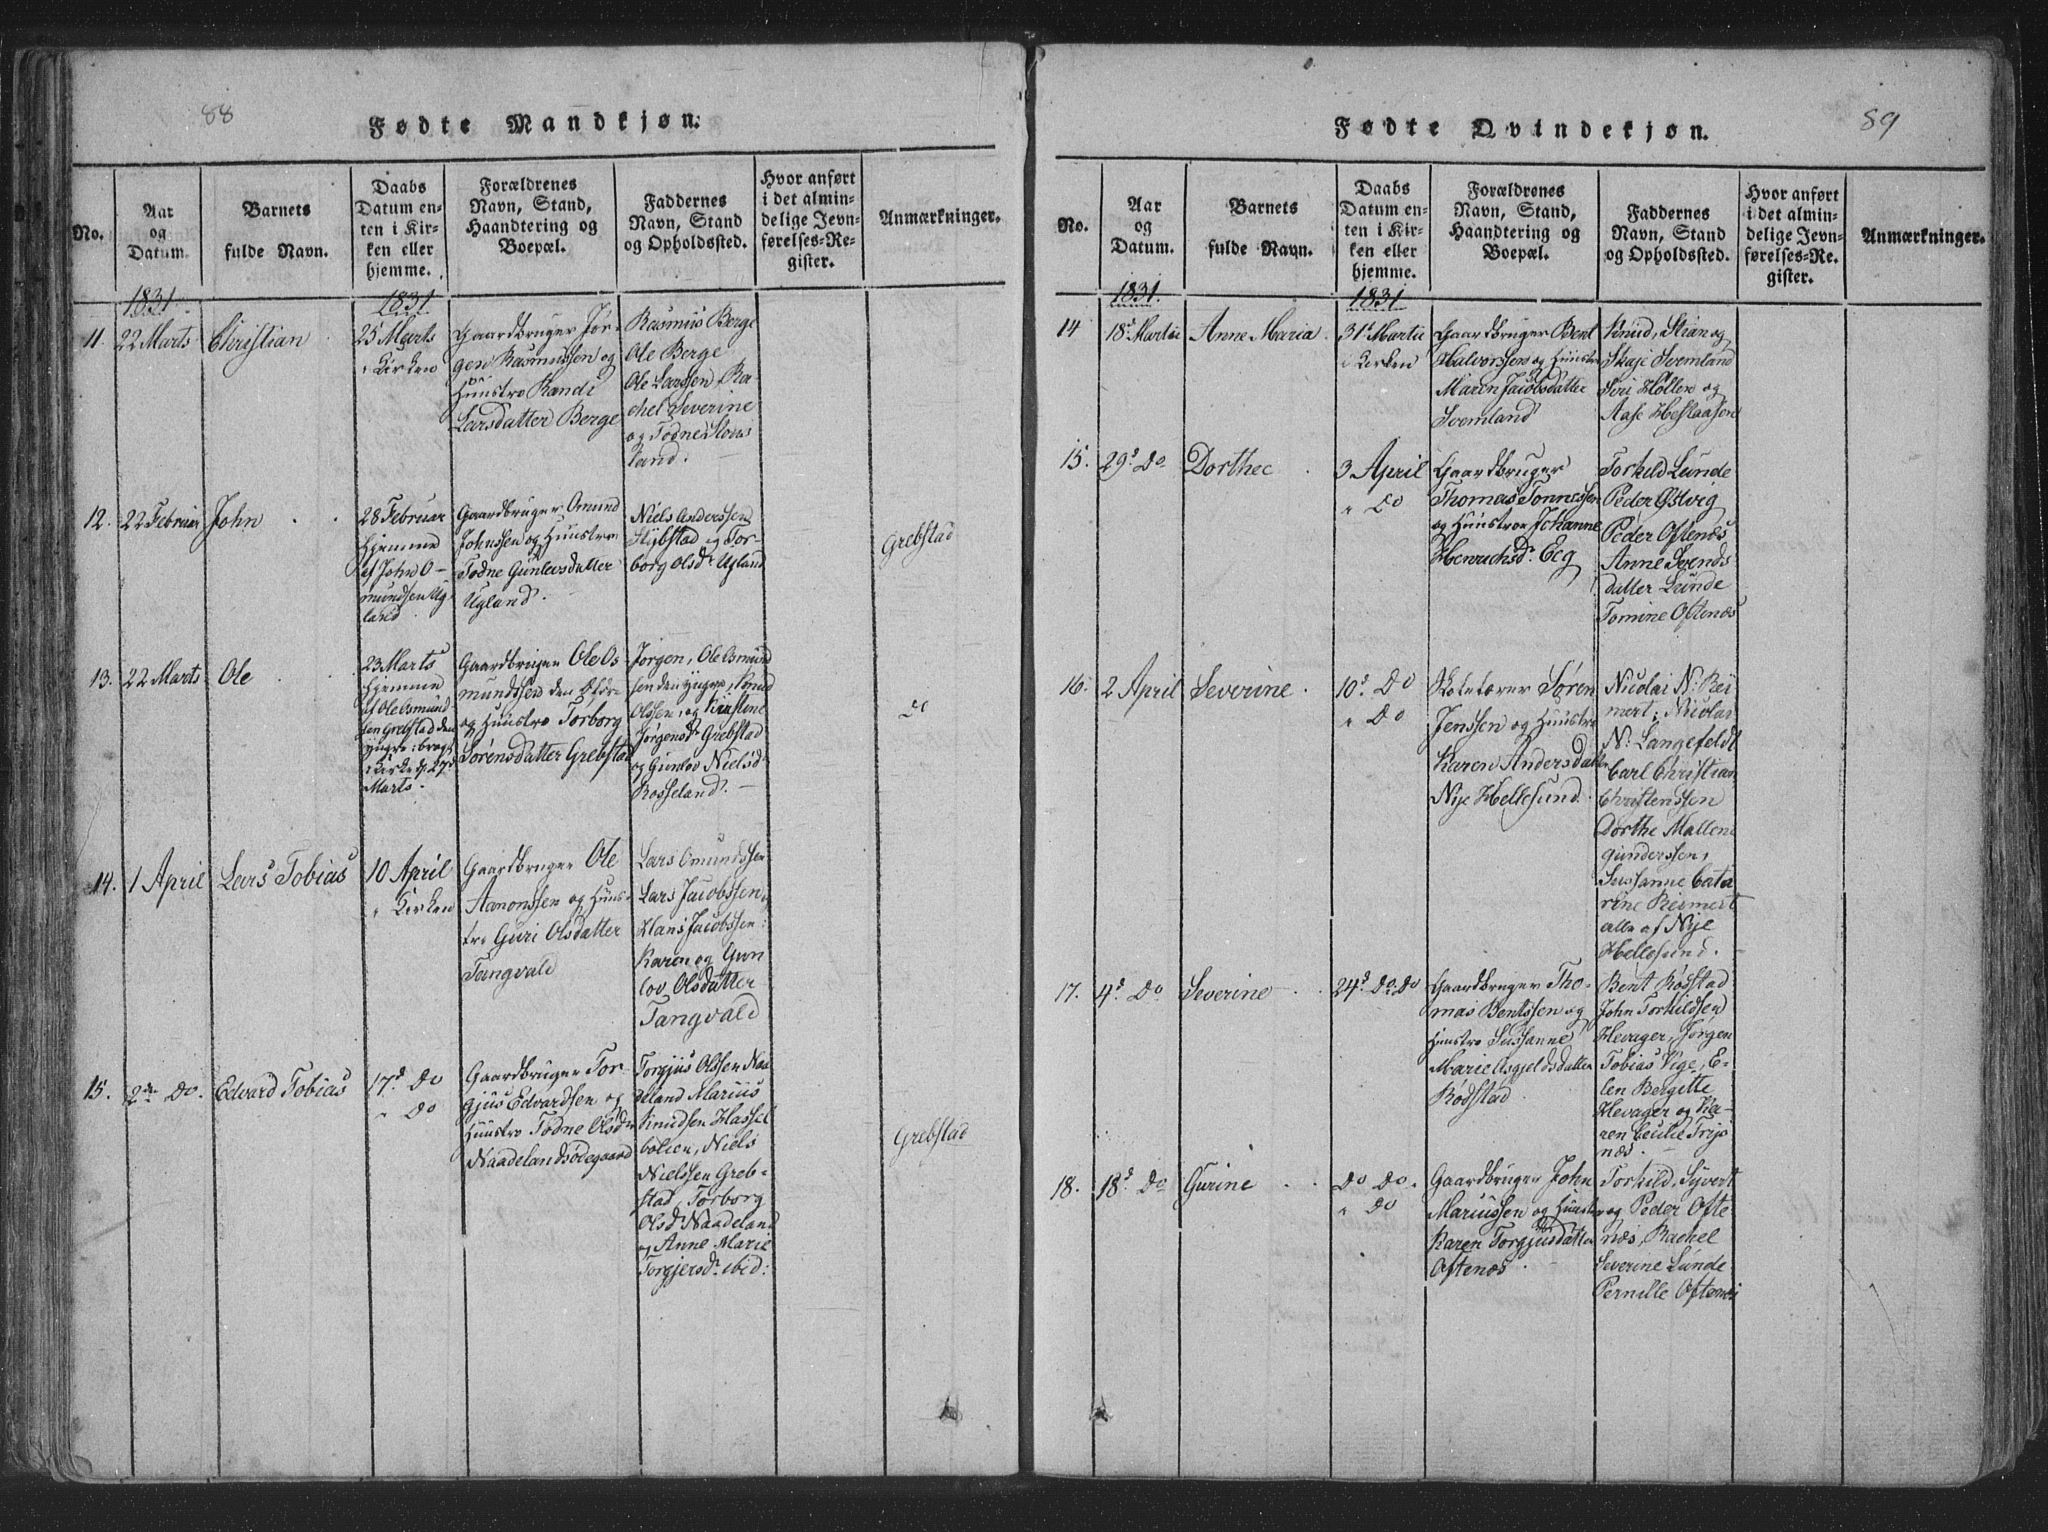 88
Fødte Mandkjøn.
No.
Aar
og
Datum.
Barnets
fulde Navn.
Daabs
Datum en-
ten i Kir-
ken eller
hjemme.
Forældrenes
Navn, Stand,
Haandtering og
Boepæl.
Faddernes
Navn, Stand
og Opholdssted.
Hvor anført
i det almin-
delige Jevn-
førelses-Re-
gister.
Anmærkninger.
1831
1831
11.
22 Marts
Christian
25 Marts
i Kirken
Gaardbruger Jør-
gen Rasmussen og
Huustro Randi
Larsdatter Berge
Rasmus Berge
Ole Berge
Ole Larssen, Ra-
chel Severine
og Todne Slots
land.
12.
22 Februar
John
28 Februar
hjemme
af John O-
mundsen Ug-
land
Gaardbruger Omund
Johnssen og Huustroe
Todne Gunlevsdatter
Ugland.
Niels Anderssen
Stybstad og Tor-
borg Olsdr Ugland
Grebstad
13.
22 Marts
Ole
23 Marts
hjemme
af Ole Osmund
sen Grebstad den
yngre: bragt
i Kirke d. 27d
Marts.
Gaardbruger Ole Os-
mundssen den Ældr-
og Huustro Torborg
Sørensdatter Grebstad
Jørgen, Ole Osmund
sen den yngre, Knud
Olssen, og Kirstine
Jørgensdr Grebstad
og Gunlov Nielsd
Rosseland.
do
14.
1 April
Lars Tobias
10 April
i Kirken
Gaardbruger Ole
Aanonssen og Huus-
tro Guri Olsdatter
Tangvald
Lars Omundssen
Lars Jacobssen,
Hans Jacobssen:
Karen og Gun
lov. Olsdatter
Tangvald
15.
2den Do.
Edvard Tobias
17d Do
" Do
Gaardbruger Tor-
gjus Edvardsen og
Huustro Todne Olsdr
Naadelandsødegaard
Torgjus Olssen Naa
deland Marius
Knudsen Hassel
bolien, Niels
Nielssen Greb-
stad, Torborg
Olsd Naadeland
og Anne Marie
Torgjersdr ibid:
Grebstad
89
Fødte Qvindekjøn.
No.
Aar
og
Datum.
Barnets
fulde Navn.
Daabs
Datum en-
ten i Kir-
ken eller
hjemme.
Forældrenes
Navn, Stand,
Haandtering og
Boepæl.
Faddernes
Navn, Stand
og Opholdssted.
Hvor anført
i det almin-
delige Jevn-
førelses-Re-
gister.
Anmærkninger.
1831.
1831
14
18d Martii
Anne Maria
31d Martii
i Kirken
Gaardbruger Bent
Halvorssen og Huustro
Maren Jacobsdatter
Svemland
Knud, Stian og
Skaje Svemland
Siri Hollen og
Aase Heslaasen
15.
29d Do
Dorthee
3 April
" do
Gaardbruger
Thomas Tonnessen
og Huustroe Johanne
Henrichsdr Eeg
Torkild Lunde
Peder Østvig
Peder Oftenæs
Anne Svends
datter Lunde
Tomine Oftenæs
16.
2 April
Severine
10d Do
" Do
Søren
Jenssen og Huustro
Karen Andersdatter
Nye Hellesund.
Nicolai N: Rei
mert: Nicolai
N: Langefeldt
Carl Christian
Christenssen
Dorthe Mallene
gunderssen,
Sussanne Cata
rine Reimert
alle af Nye
Hellesund.
17.
4d Do
Severine
24d Do. Do
Gaardbruger Tho-
mas Bentssen og
Huustro Sussanne
Marie Asgjeldsdatter
Rødstad
Bent Rødstad
John Torkildsen
Hevager, Jørgen
Tobias Vige, E-
len Bergitte
Hevager og Ka-
ren Cecilie Trijs
næs.
18.
18d Do
Gurine
Do Do.
" Do
Gaardbruger John
Mariussen og Huustro
Karen Torgjusdatter
Oftenæs
Torkild, Syvert
og Peder Ofte
næs, Rachel
Severine Lunde
Pernille Oftenæs